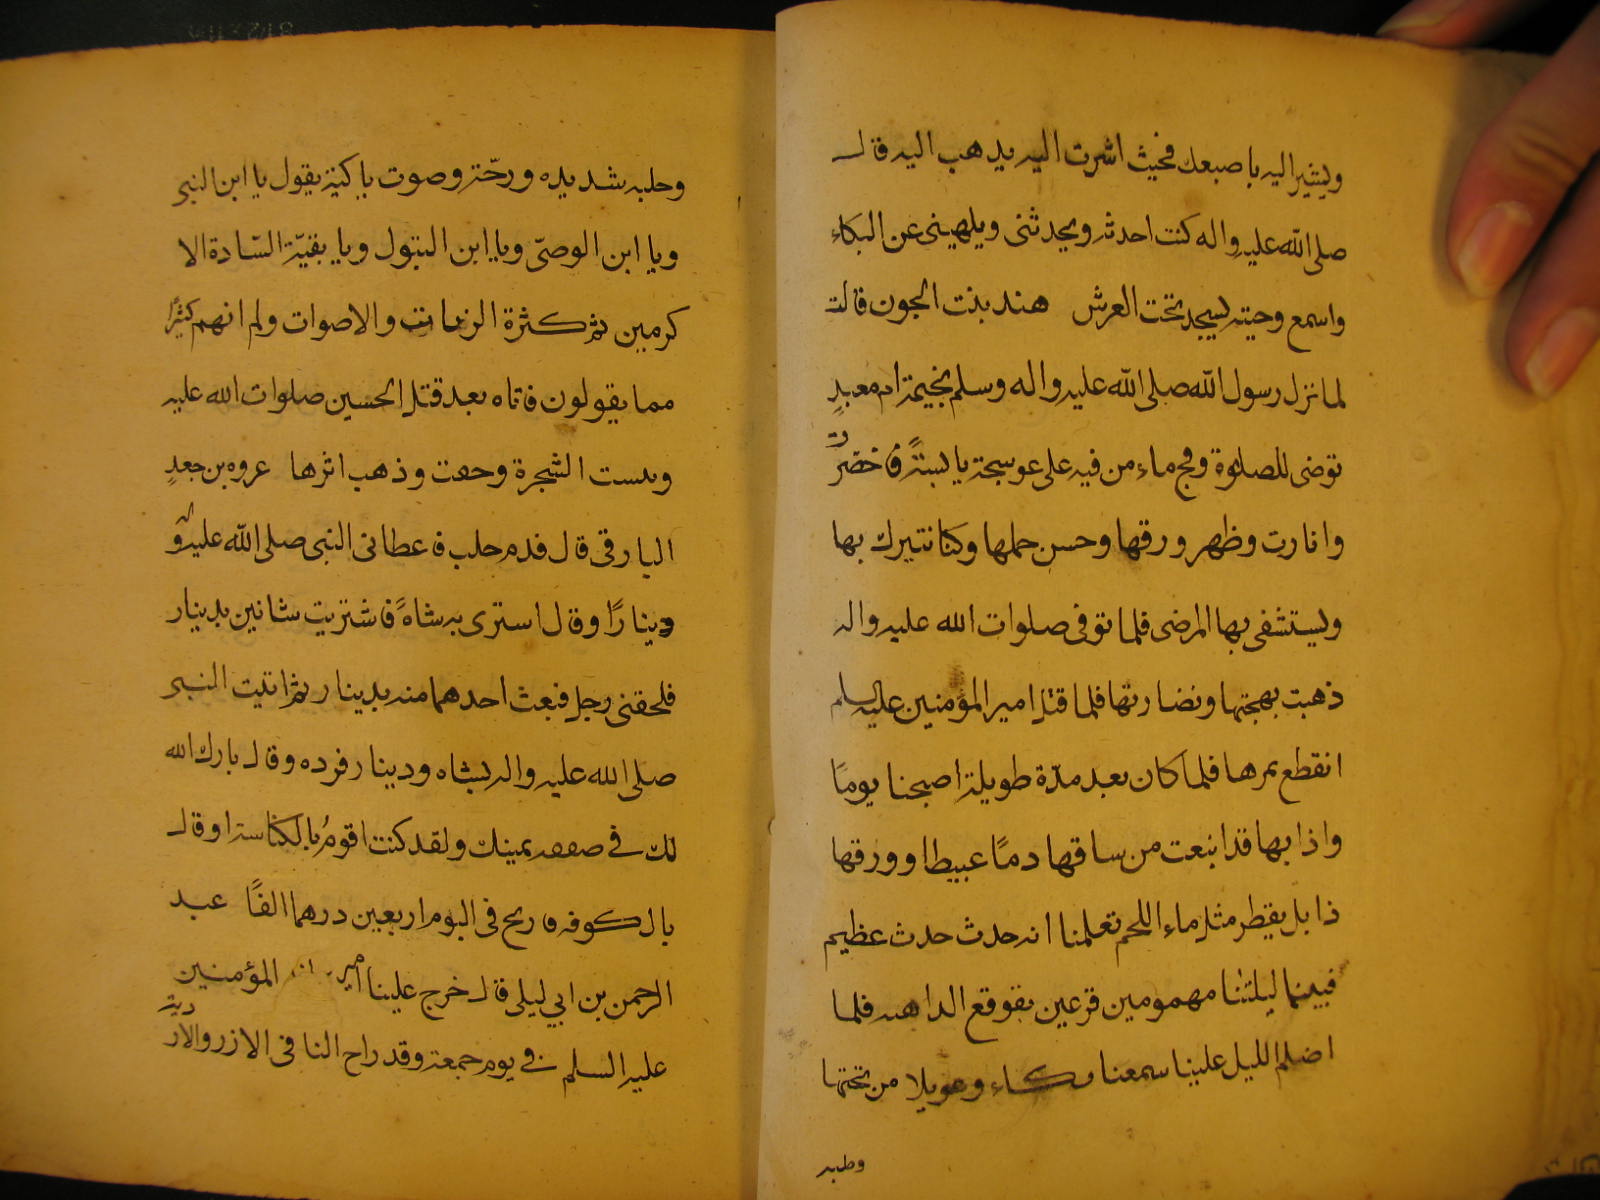 ويشير اليه باصبعك فحيث اشرت اليه يذهب اليه قال
صلى الله عليه واله كنت احدثه ويحدثنى ويلهينى عن البكاء
واسمع وحيته يسجد تحت العرش هند بنت الجون قالت
لما نزل رسول الله صلى الله عليه واله وسلم بخيمة ام معبدٍ
توضى للصلوة ومج ماء من فيه على عوسجة يابستة فاخضرّت
وانارت وظهر ورقها وحسن حملها وكنا نتبرك بها
ويستشفى بها المرضى فلما توفى صلوات الله عليه واله
ذهبت بهجتها ونضارتها فلما قتل امير المؤمنين عليه السلم
انقطع ثمرها فلما كان بعد مدّة طويلة اصبحنا يومًا
واذا بها قد انبعت من ساقها دمًا عبيطا وورقها
ذابل يقطر مثل ماء اللحم تعلمنا انه حدث حدث عظيم
فبينما ليلتنا مهمومين فزعين بقوقع الداهيه فلما
اضلم الليل علينا سمعنا بكاء وعويلا من تحتها
وطبه
وجلبه شديده ورجّة وصوت باكية يقول يا ابن النبى
ويا ابن الوصىّ ويا ابن البتول ويا بقيّة السّادة الا
كرمين ثم كثرة الرنات والاصوات ولم انهم كثيرًا
مما يقولون فاتاه بعد قتل الحسين صلوات الله عليه
ويبست الشجرة وجفت وذهب اثرها عروه بن جعدٍ
البارقى قال قدم جلب فاعطانى النبى صلى الله عليه واله
دينارًا وقال استرى به شاةً فاشتريت شاتين بدينار
فلحقنى رجل فبعث احدهما منه بدينار ثم اتيت النبى
صلى الله عليه واله بشاه ودينار فرده وقال بارك الله
لك في صفقه يمينك ولقد كنت اقومُ بالكناسه او قال
بالكوفه فاربح فى اليوم اربعين درهما الفًا عبد
الرحمن بن ابي ليلى قال خرج علينا امير المؤمنين
عليه السلم في يوم جمعة وقد راح النا فى الازر والاردية